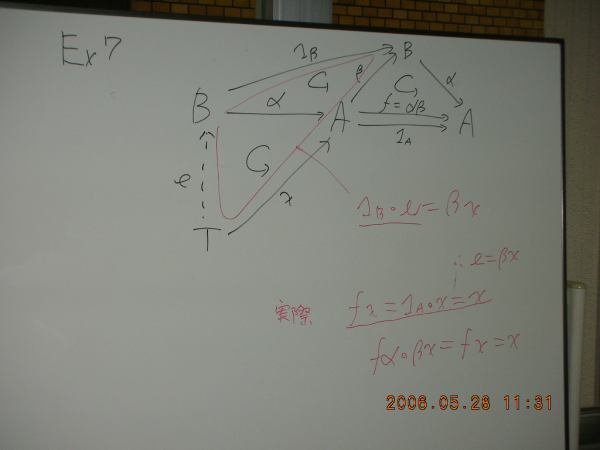 Ex7
1_B
B
β
C
C
α
B
α
A
f = αβ
A
1_A
C
e
x
T
1_B∘e = βx
∴ e = βx
実際
fx = 1_A∘x = x
fα∘βx = fx = x
2006.05.28 11:31